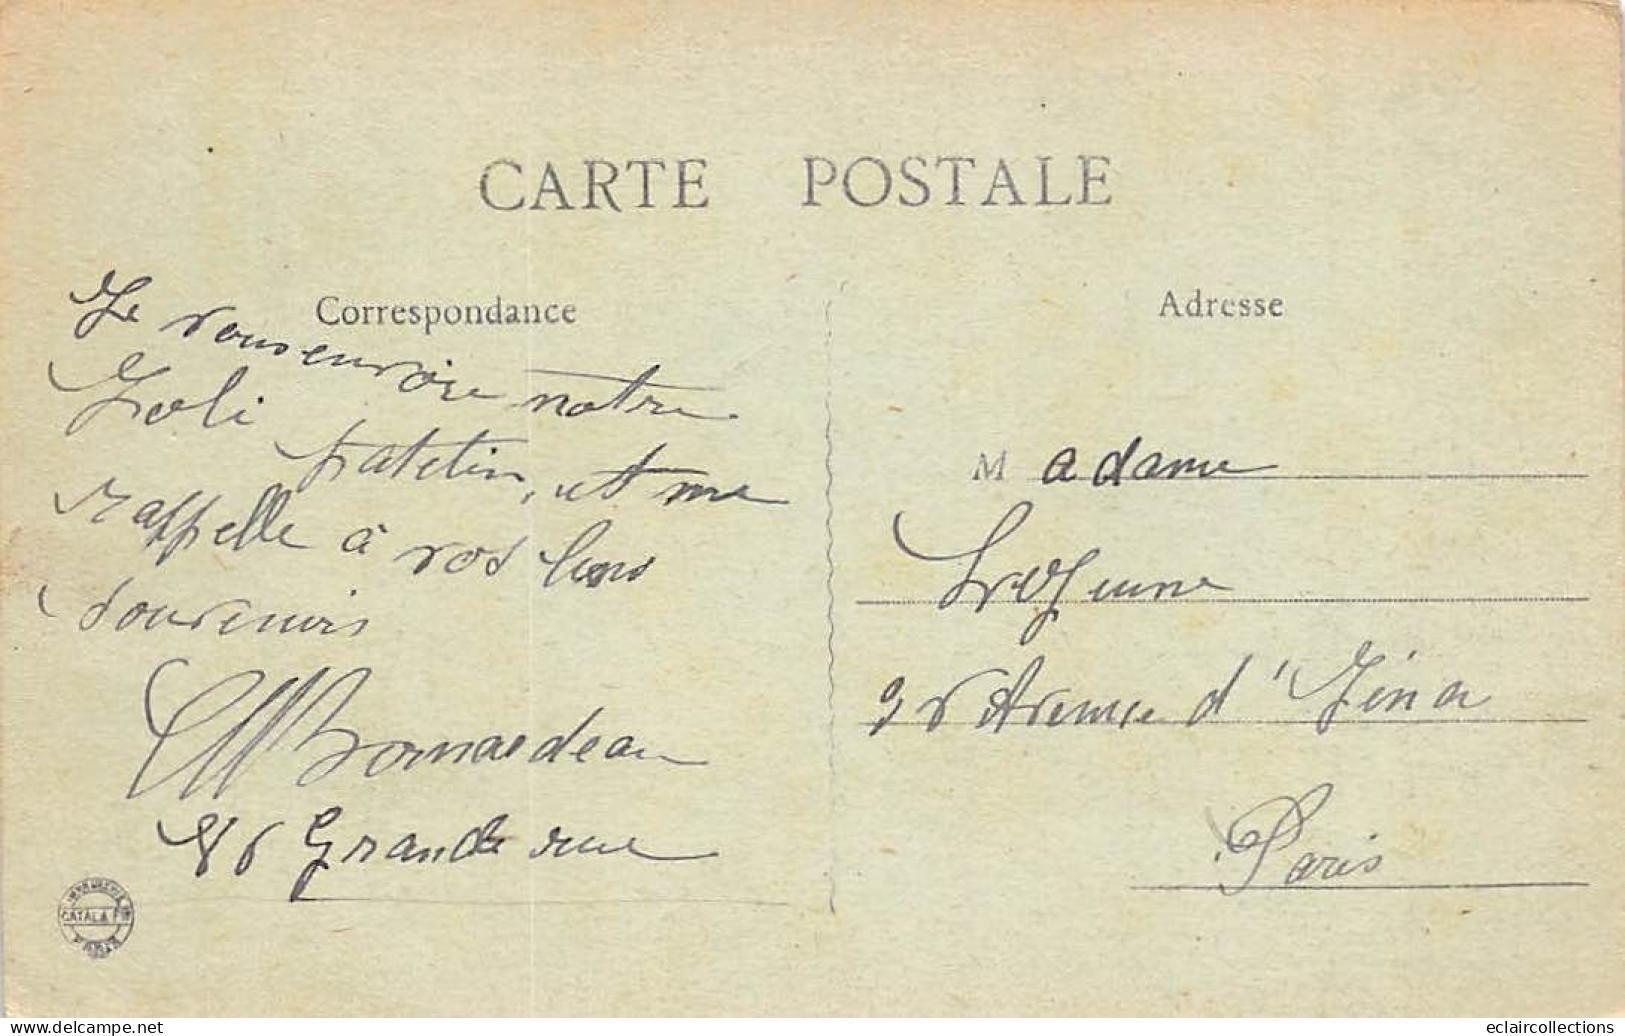 CARTE POSTALE
Correspondance
Je vous envoie notre
Joli patelin, et me
rappelle à vos bons
souvenirs
Bonnardeau
86 Grande rue
Adresse
Madame
LeJeune
Avenue d'Iéna
Paris
IMPRIMERIE
CATALA Frères
PARIS
www.delcampe.net
eclaircollections